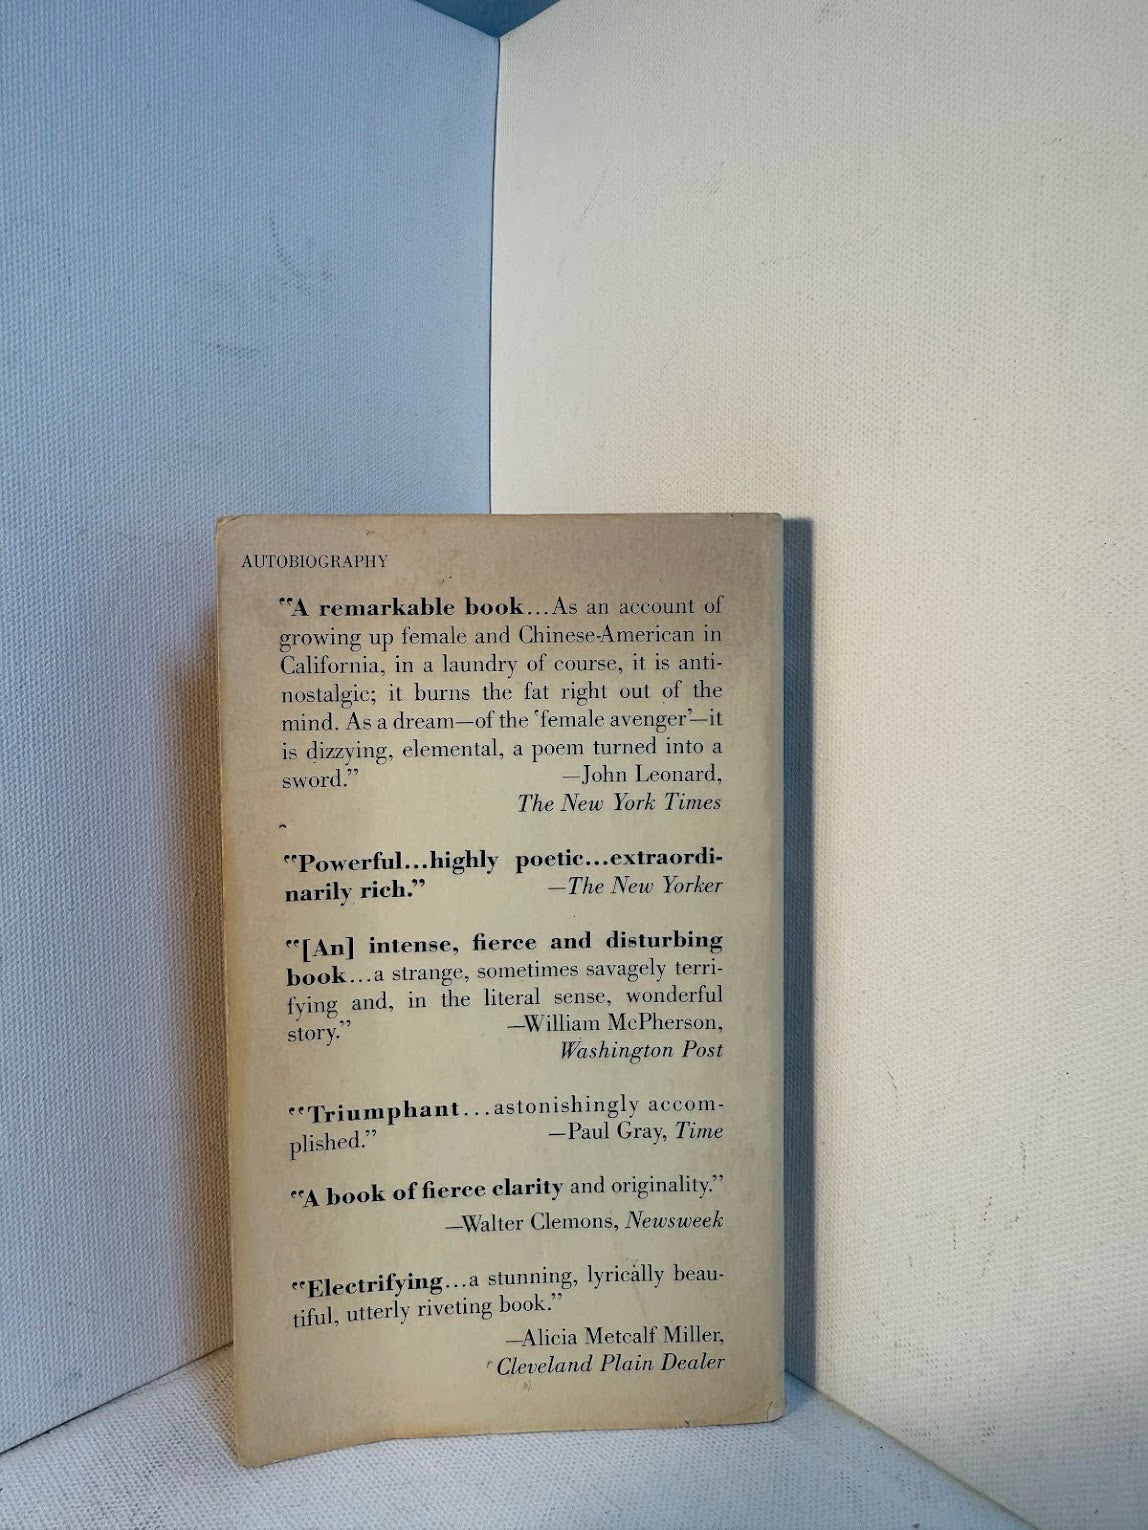 AUTOBIOGRAPHY
“A remarkable book...As an account of
growing up female and Chinese-American in
California, in a laundry of course, it is anti-
nostalgic; it burns the fat right out of the
mind. As a dream—of the ‘female avenger’—it
is dizzying, elemental, a poem turned into a
sword.” —John Leonard,
The New York Times
“Powerful...highly poetic...extraordi-
narily rich.” —The New Yorker
“[An] intense, fierce and disturbing
book...a strange, sometimes savagely terri-
fying and, in the literal sense, wonderful
story.” —William McPherson,
Washington Post
“Triumphant...astonishingly accom-
plished.” —Paul Gray, Time
“A book of fierce clarity and originality.”
—Walter Clemons, Newsweek
“Electrifying...a stunning, lyrically beau-
tiful, utterly riveting book.”
—Alicia Metcalf Miller,
Cleveland Plain Dealer